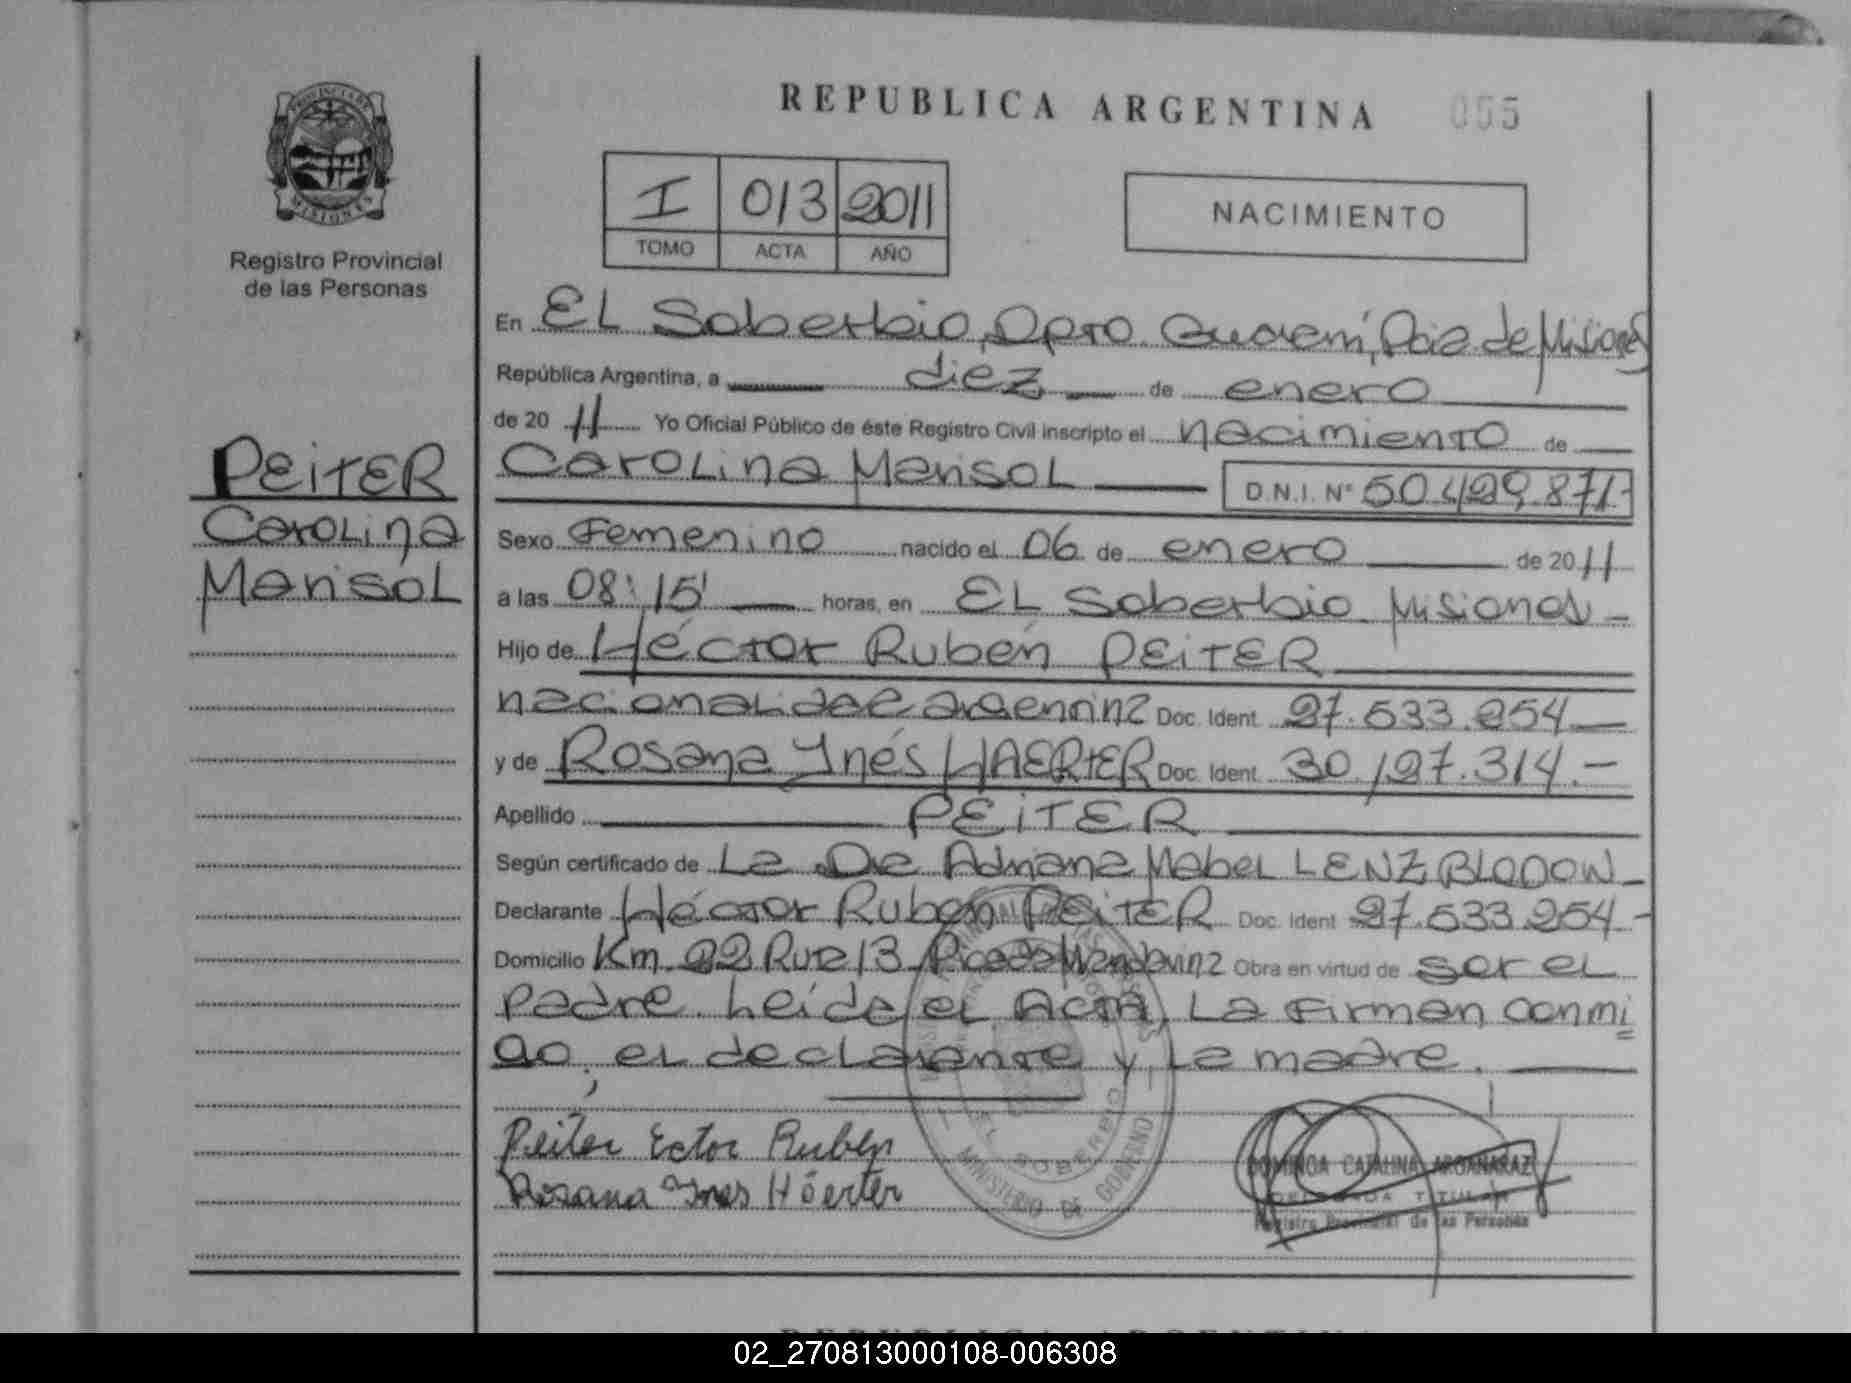 REPUBLICA ARGENTINA 055
PROVINCIA DE
MISIONES
Registro Provincial
de las Personas
I 013 2011
TOMO ACTA AÑO
NACIMIENTO
En EL Soberbio, Dpto. Guaraní, Pcia. de Misiones
República Argentina, a diez de enero
de 20 11 Yo Oficial Público de éste Registro Civil inscripto el nacimiento de
Carolina Marisol D.N.I. N° 50.429.871-
PEITER
Carolina
Marisol
Sexo Femenino nacido el 06 de enero de 20 11
a las 08:15' horas, en EL Soberbio Misiones -
Hijo de Héctor Rubén PEITER
nacionalidad argentina Doc. Ident. 27.533.254
y de Rosana Inés HAERTER Doc. Ident. 30.127.314.-
Apellido PEITER
Según certificado de La Dra Adriana Mabel LENZ BLODOW -
Declarante Héctor Ruben PEITER Doc. Ident 27.533.254 -
Domicilio Km 22 Ruta 13 Picada Mandarina Obra en virtud de ser el
padre. Leída el Acta, La Firman conmi
go, el declarante y la madre.
Peiter Ector Ruben
Rosana Ines Häerter
EL SOBERBIO
MINISTERIO DE GOBIERNO
DOMINGA CATALINA ARGAÑARAZ
DELEGADA TITULAR
Registro Provincial de las Personas
02_270813000108-006308